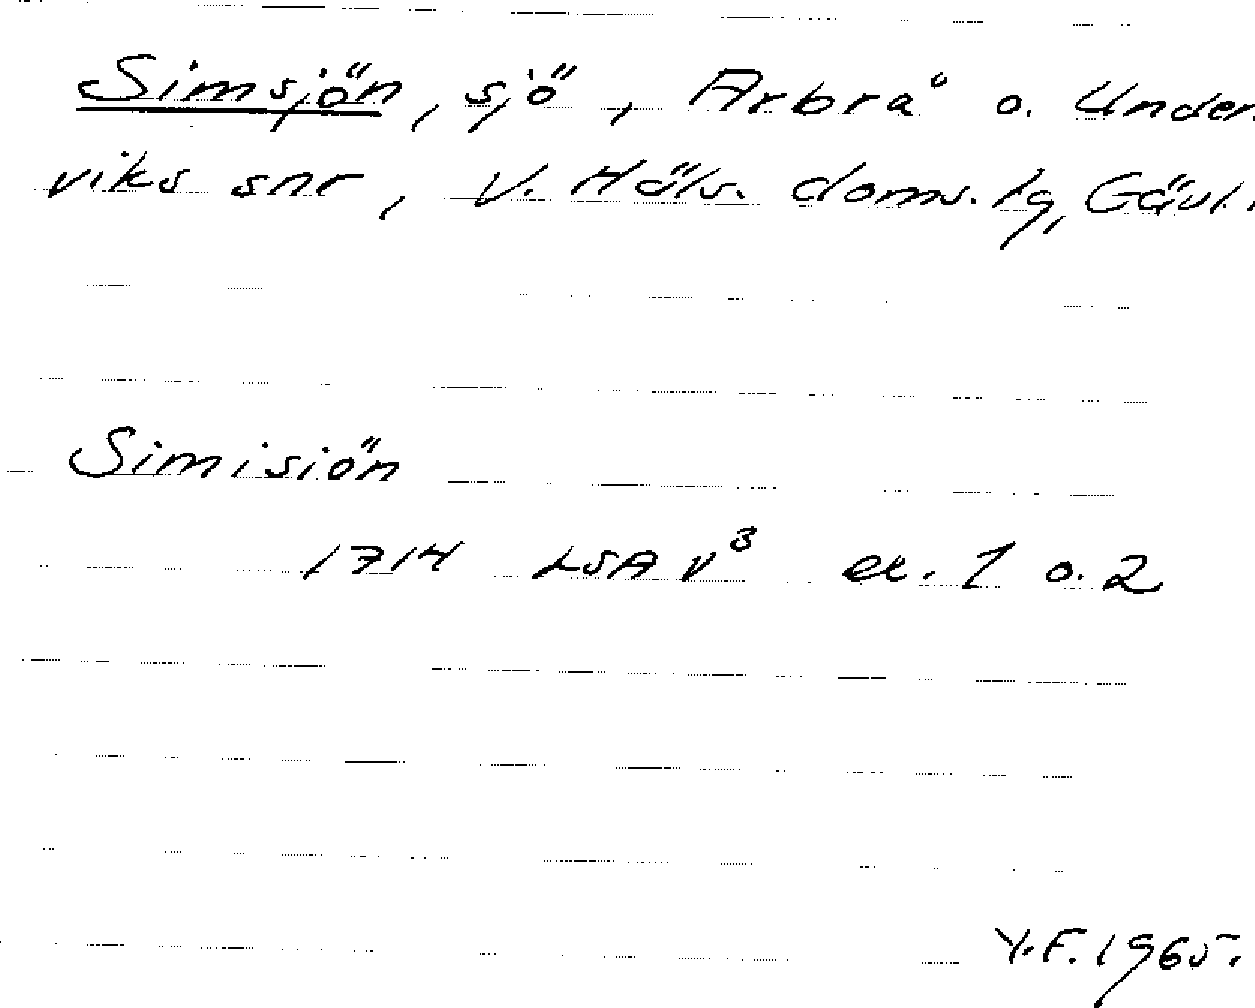 Simsjön, sjö, Arbrå o. Under
viks snr, V. Häls. doms. lg, Gävl.
Simisiön
1714 LSA V³ ex. 1 o. 2
Y.F. 1965.